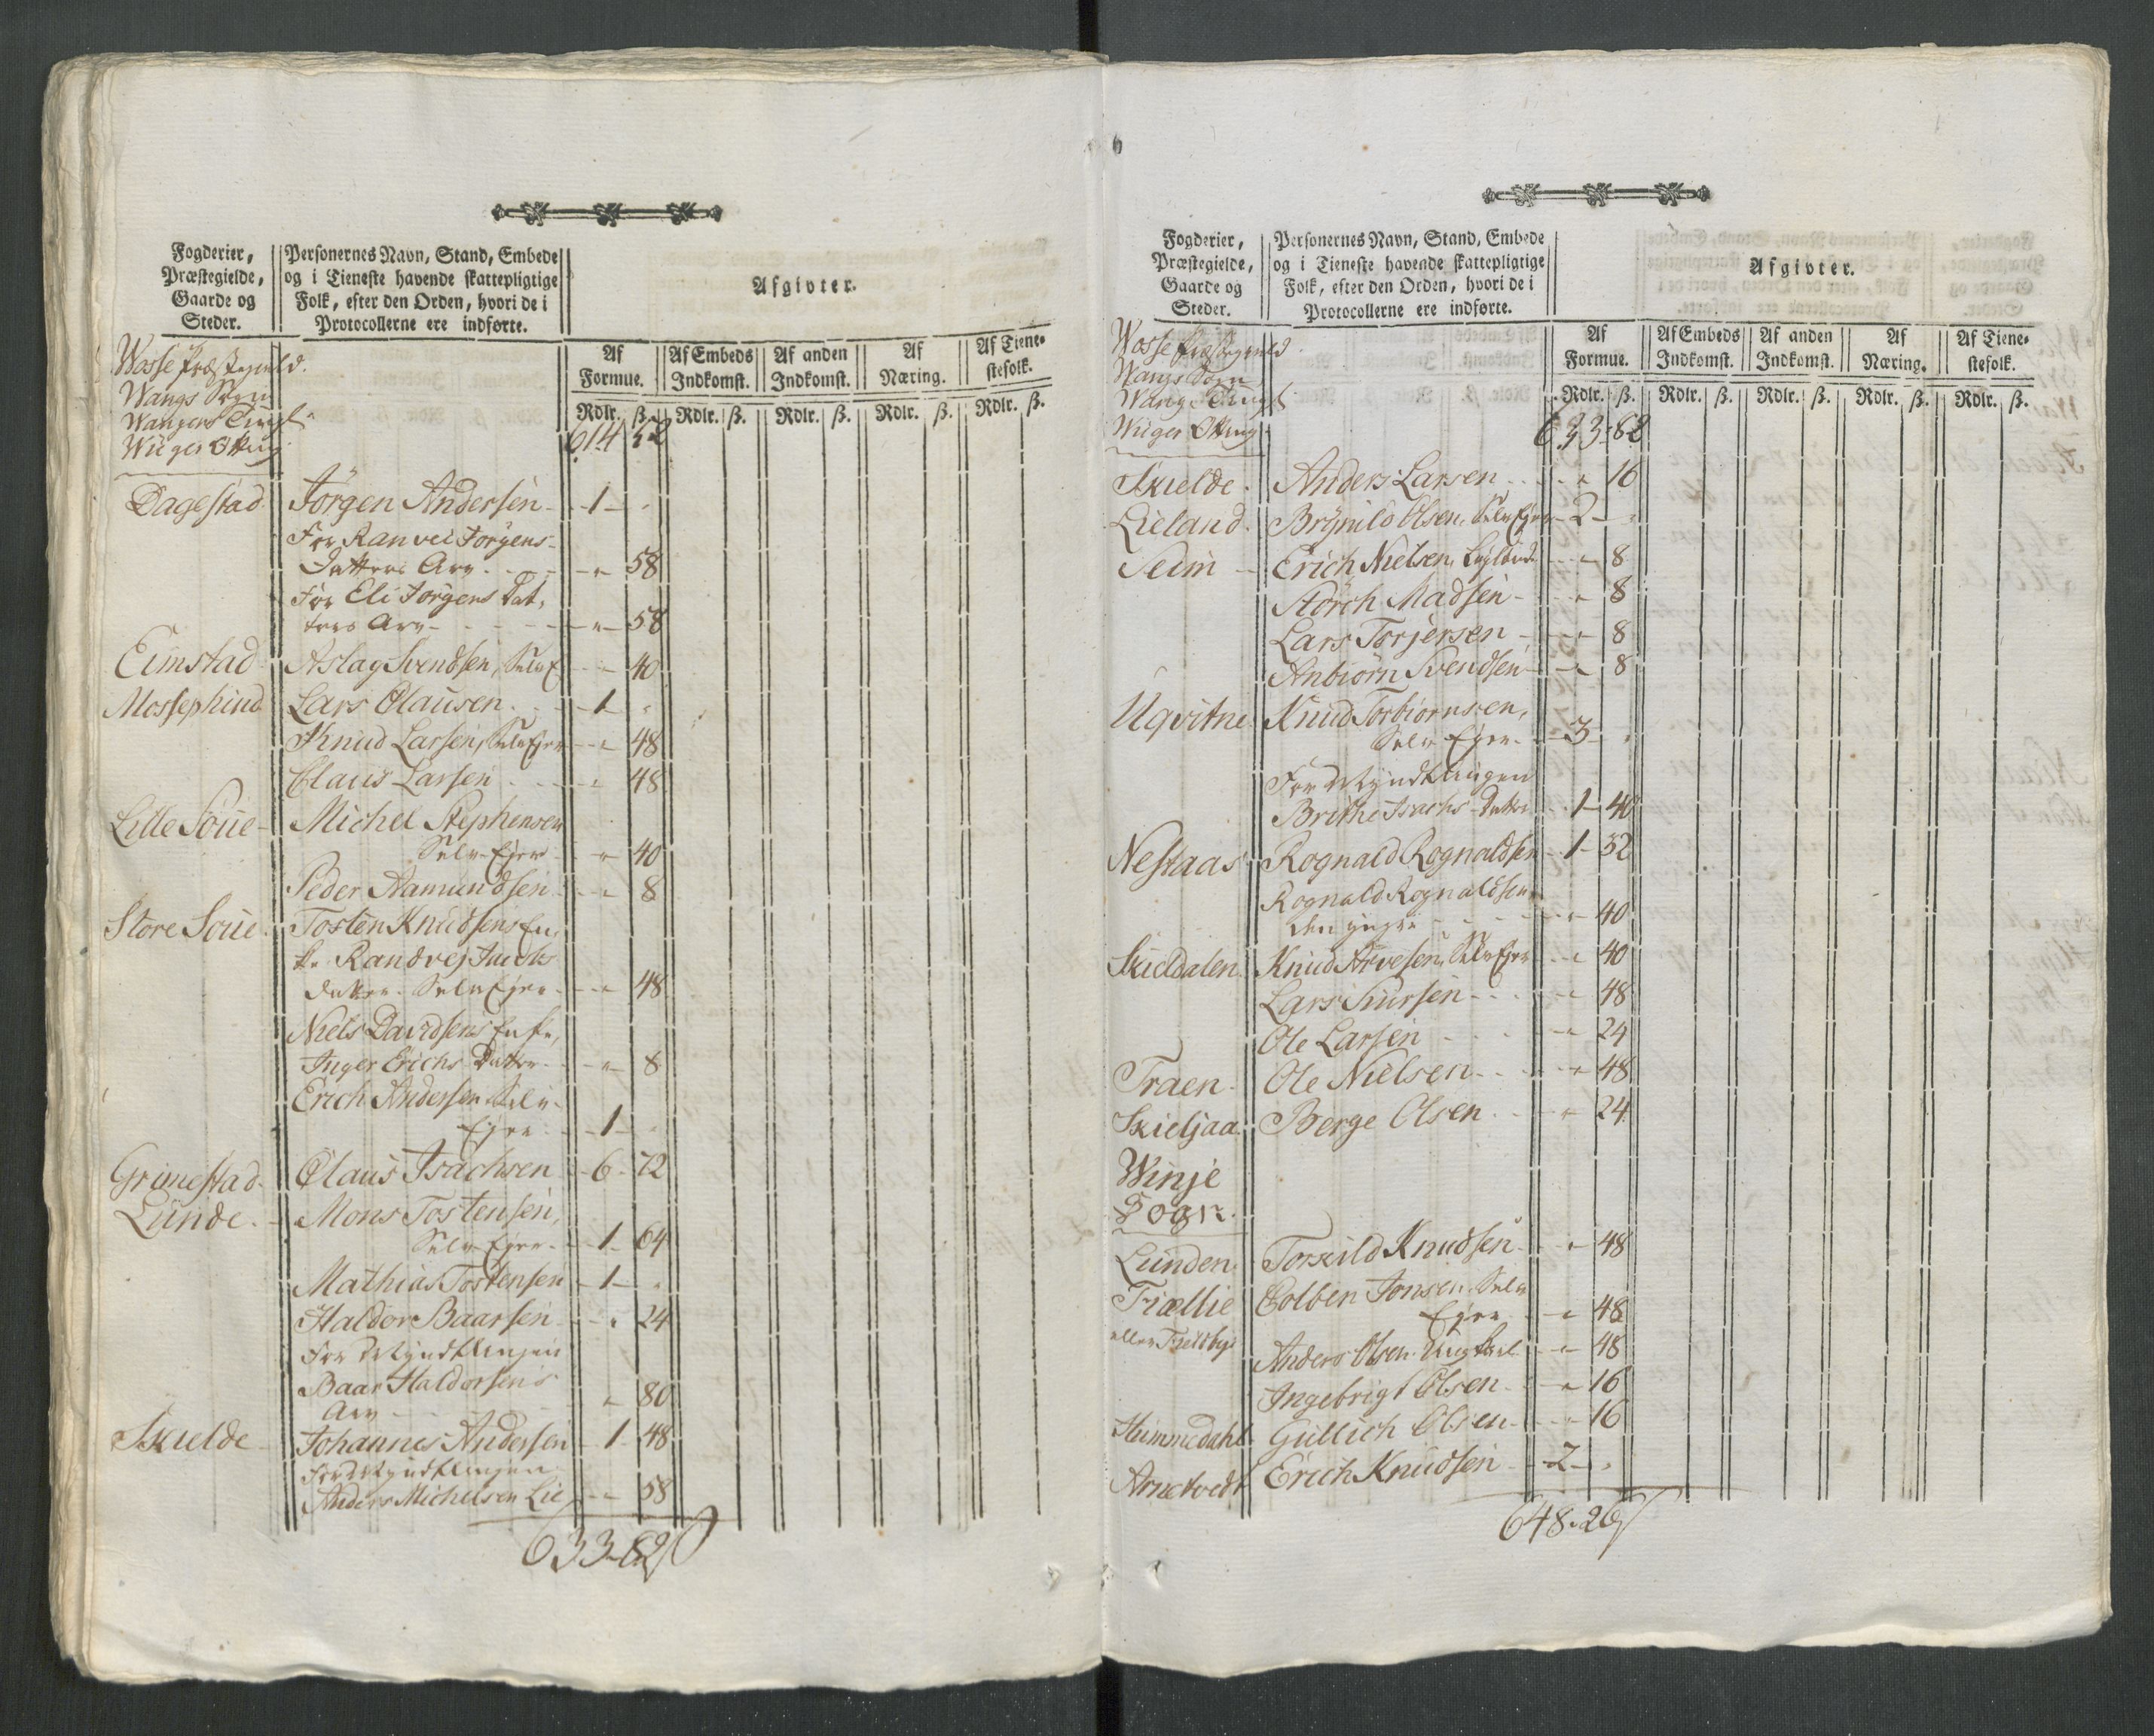 Fogderier,
Præstegielde,
Gaarde og
Steder.
Personernes Navn, Stand, Embede
og i Tieneste havende skattepligtige
Folk, efter den Orden, hvori de i
Protocollerne ere indførte.
Afgivter.
Af
Formue.
Af Embeds
Indkomst.
Af anden
Indkomst.
Af
Næring.
Af Tiene-
stefolk.
Rdlr. ß. Rdlr. ß. Rdlr. ß. Rdlr. ß. Rdlr. ß.
Wosse Præstegield.
Wangs Sogn
Wangens Tingl.
Wiiger Otting
614
Dagestad Jörgen Andersen 1
For Ranvei Jörgens
Datters Arv 58
For Eli Jörgens Dat,
ters Arv 58
Eimstad Aslag Svendsen, Selv E 40
Mossephind Lars Olausen 1
Knud Larsen, Selv Ejer 48
Claus Larsen 48
Lille Soüe Michel Stephensen
Selv Ejer 40
Peder Aamundsen 8
Store Soüe Tosten Knudsens En,
ke Randvej Jacobs
datter Selv Ejer 48
Niels Davidsens Enke,
Inger Erichs Datter 8
Erich Andersen Selv
Ejer 1
Grimestad Olaus Isachsen 6 72
Lünde Mons Tostensen,
Selv Ejer 1 64
Mathias Tostensen 1
Haldor Baarsen 24
For Myndtlingen
Baar Haldorsens
Arv 80
Skielde Johannes Andersen 1 48
For Myndtlingen
Anders Michelsen Lie 58
633-82
Fogderier,
Præstegielde,
Gaarde og
Steder.
Personernes Navn, Stand, Embede
og i Tieneste havende skattepligtige
Folk, efter den Orden, hvori de i
Protocollerne ere indførte.
Afgivter.
Af
Formue.
Af Embeds
Indkomst.
Af anden
Indkomst.
Af
Næring.
Af Tiene-
stefolk.
Rdlr. ß. Rdlr. ß. Rdlr. ß. Rdlr. ß. Rdlr. ß.
Wosse Præstegield.
Wangs Sogn
Wangs Tingl
Wiiger Otting
633-82
Skielde Anders Larsen 16
Lieland Brynild Olsen, Selv Ejer 2
Seim Erich Nielsen, 8
Störch Madsen 8
Lars Torjersen 8
Anbiörn Svendsen 8
Ugvitne Knud Torbiörnsen,
Selv Ejer 3
For Myndtlingen
Brithe Isachs Datter 1 40
Nestaas Rognald Rognaldsen 1 32
Rognald Rognaldsen
den yngre 40
Skieldalen Knud Arvesen, Selv Ejer 40
Lars Siursen 48
Ole Larsen 24
Traen Ole Nielsen 48
Skieljaa Berge Olsen 24
Winje
Sogn
Lünden Torkild Knudsen 48
Tiællie Colben Jonsen Selv
Ejer 48
eller
Anders Olsen Ung Karl 48
Ingebrigt Olsen 16
Himmedahl Gullich Olsen 16
Arnetvedt Erich Knudsen 2
648-26